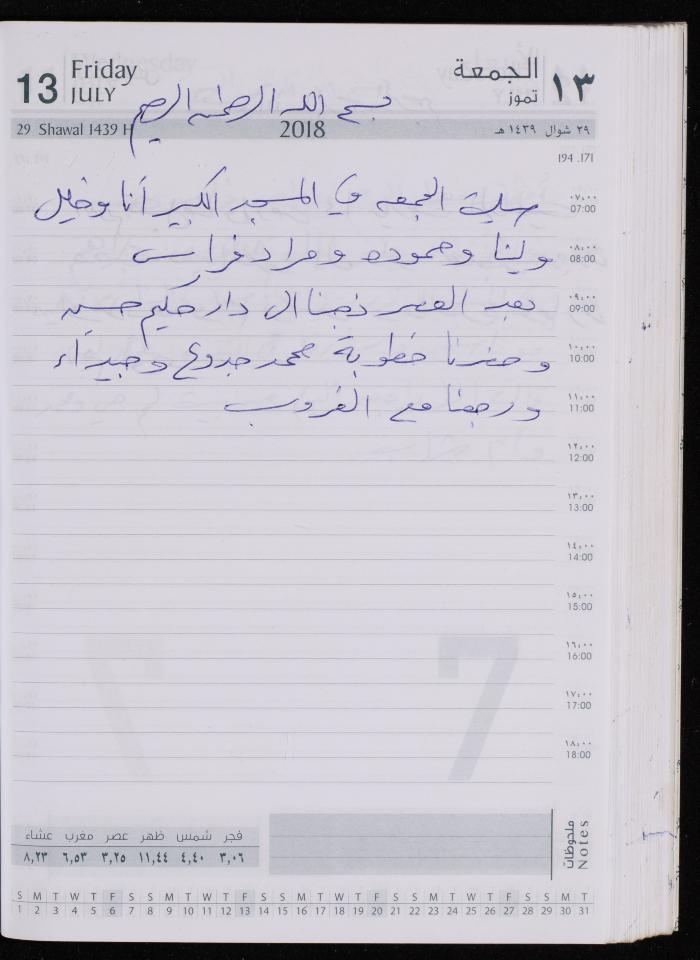 13 Friday JULY الجمعة تموز ١٣
بسم الله الرحمن الرحيم
29 Shawal 1439 H 2018 ٢٩ شوال ١٤٣٩ هـ
194 .171
صليت الجمعه في المسجد الكبير أنا وخليل
ولينا وحموده ومراد فراس
بعد العصر ذهبنا ال دار حكيم حسين
وحضرنا خطوبة محمد جدوع وجيداء
ورجعنا مع الغروب
٠٧:٠٠
07:00
٠٨:٠٠
08:00
٠٩:٠٠
09:00
١٠:٠٠
10:00
١١:٠٠
11:00
١٢:٠٠
12:00
١٣:٠٠
13:00
١٤:٠٠
14:00
١٥:٠٠
15:00
١٦:٠٠
16:00
١٧:٠٠
17:00
١٨:٠٠
18:00
7
فجر شمس ظهر عصر مغرب عشاء
٣,٠٦ ٤,٤٠ ١١,٤٤ ٣,٢٥ ٦,٥٣ ٨,٢٣
ملحوظات
Notes
S M T W T F S S M T W T F S S M T W T F S S M T W T F S S M T
1 2 3 4 5 6 7 8 9 10 11 12 13 14 15 16 17 18 19 20 21 22 23 24 25 26 27 28 29 30 31